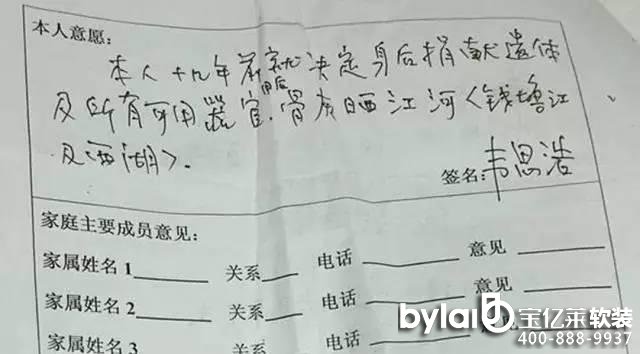 本人意愿：
本人十九年前就决定身后捐献遗体
及所有可用器官，用后骨灰晒江河〈钱塘江
及西湖〉.
签名：韦思浩
家庭主要成员意见：
家属姓名1 关系 电话 意见
家属姓名2 关系 电话 意见
家属姓名3 关系 电话
bylai 宝亿莱软装
400-888-9937